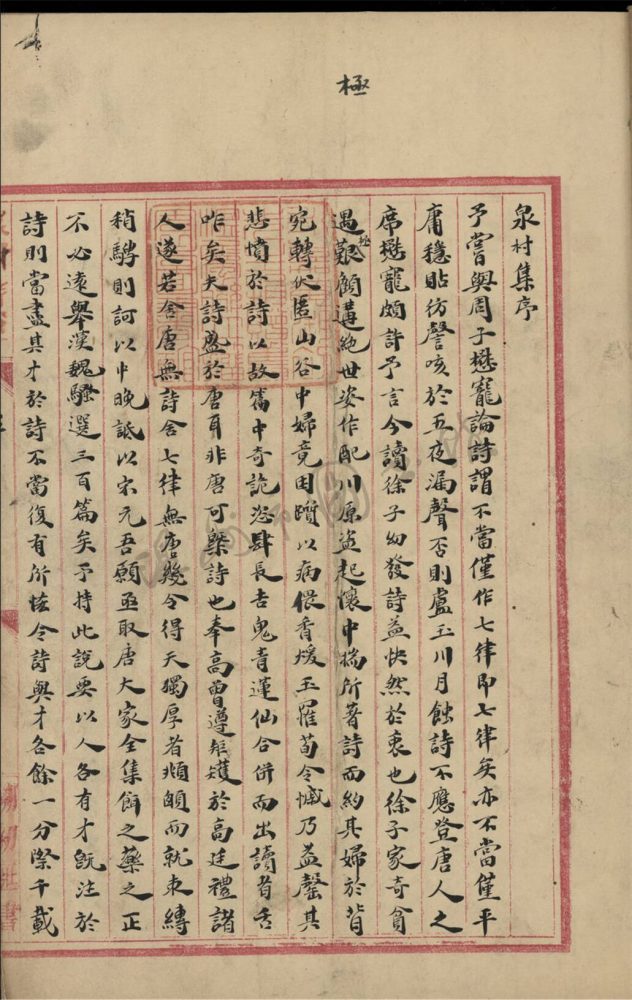 極
泉村集序
予嘗與周子懋寵論詩謂不當僅作七律即七律矣亦不當僅平
庸穩貼彷謦咳於五夜漏聲否則盧玉川月蝕詩不應登唐人之
席懋寵頗許予言今讀徐子幼發詩益快然於衷也徐子家奇貧
遇極艱顧遘絕世姿作配川原盜起懷中揣所著詩而約其婦於背
宛轉伏匿山谷中婦竟困躓以病偎香煖玉罹荀令慽乃益罄其
悲憤於詩以故篇中奇詭恣肆長吉鬼青蓮仙合併而出讀者舌
咋矣夫詩盛於唐耳非唐可槩詩也奉高曾遵矩矱於高廷禮諸
人遂若舍唐無詩舍七律無唐幾令得天獨厚者頫顱而就束縛
稍騁則訶以中晚詆以宋元吾願亟取唐大家全集餌之藥之正
不必遠舉漢魏騷選三百篇矣予持此說要以人各有才既注於
詩則當盡其才於詩不當復有所恡令詩與才各餘一分際千載